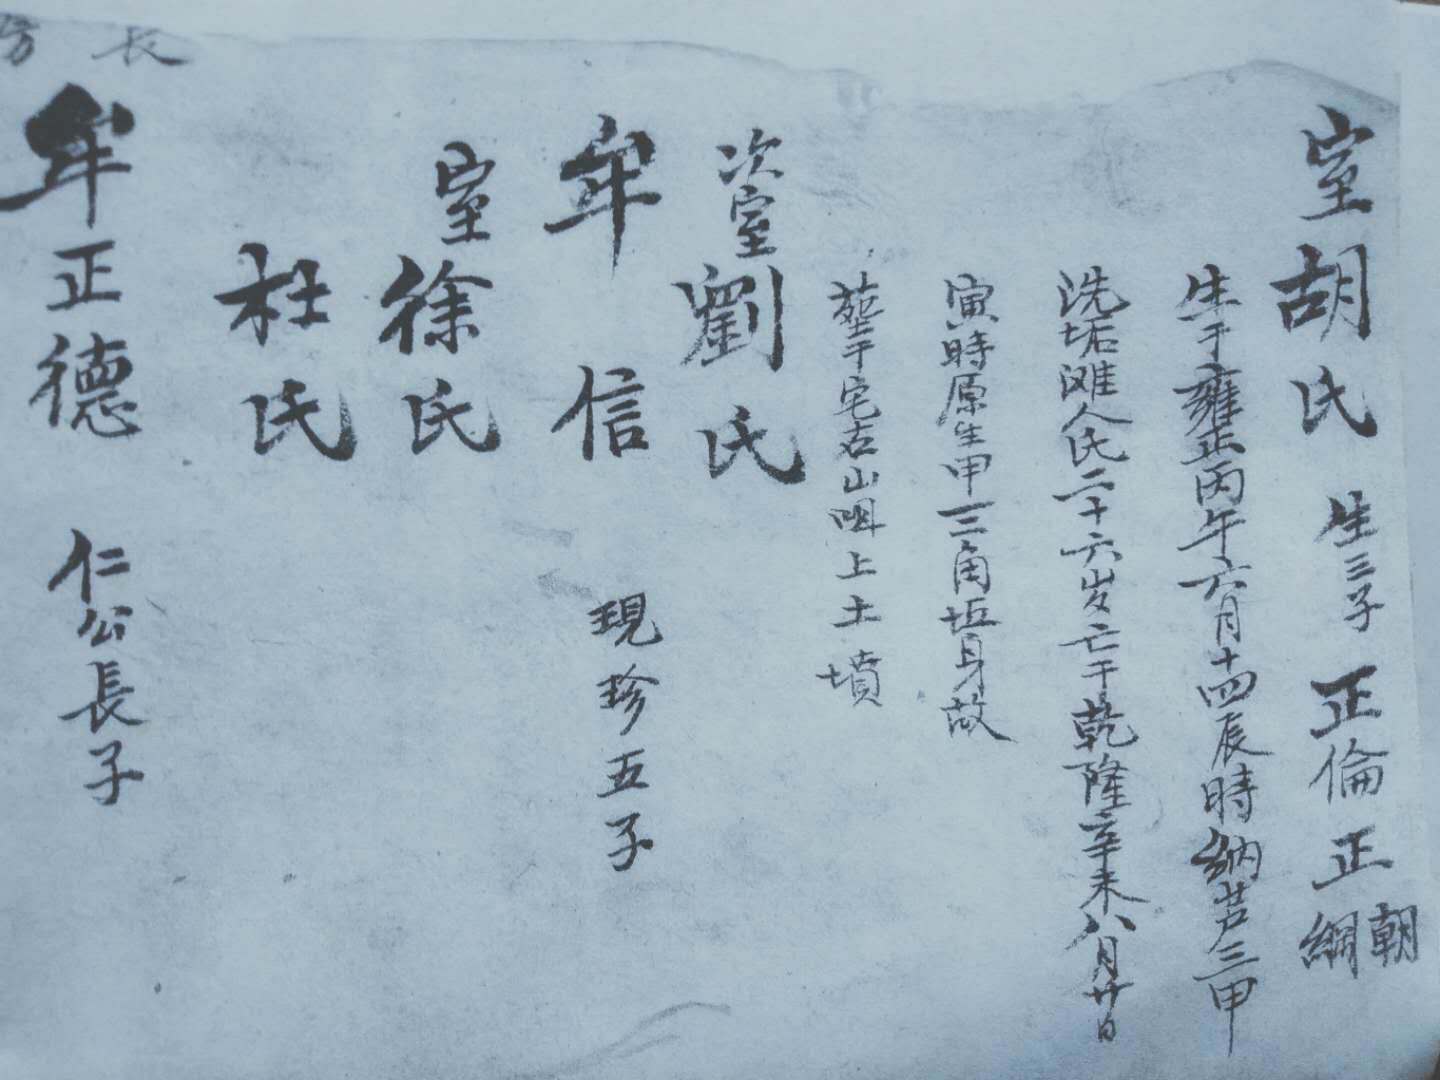 室胡氏 生三子 正倫 正朝 綱
生于雍正丙午六月十四辰時納芦三甲
洗垢滩人氏二十六岁亡于乾隆辛未八月廿日
寅時原生甲一三角坵身故
塟于宅右山咀上土墳
次室劉氏
牟信 現珍五子
室徐氏
杜氏
長房
牟正德 仁公長子